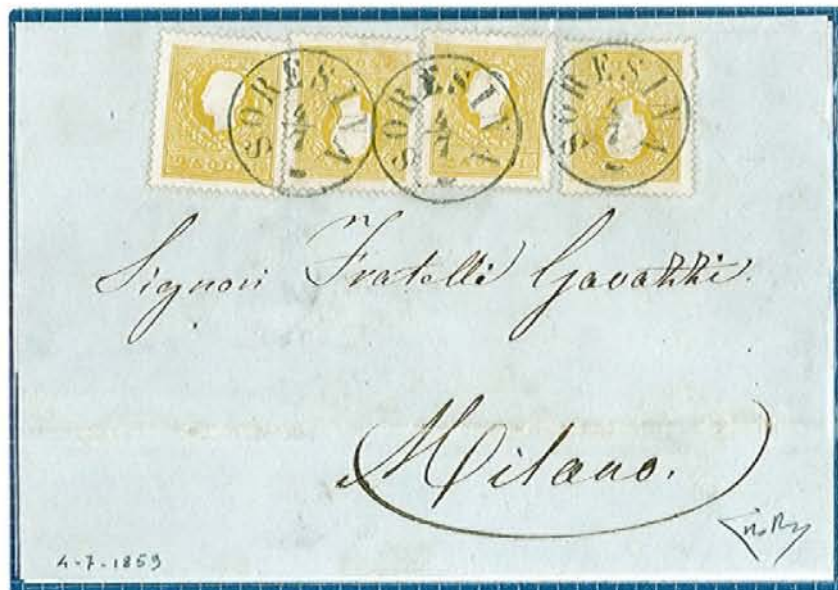 SORESINA
4/7
SORESINA
4/7
SORESINA
4/7
2 SOLDI
Signori Fratelli Gavazzi.
Milano.
4-7-1859